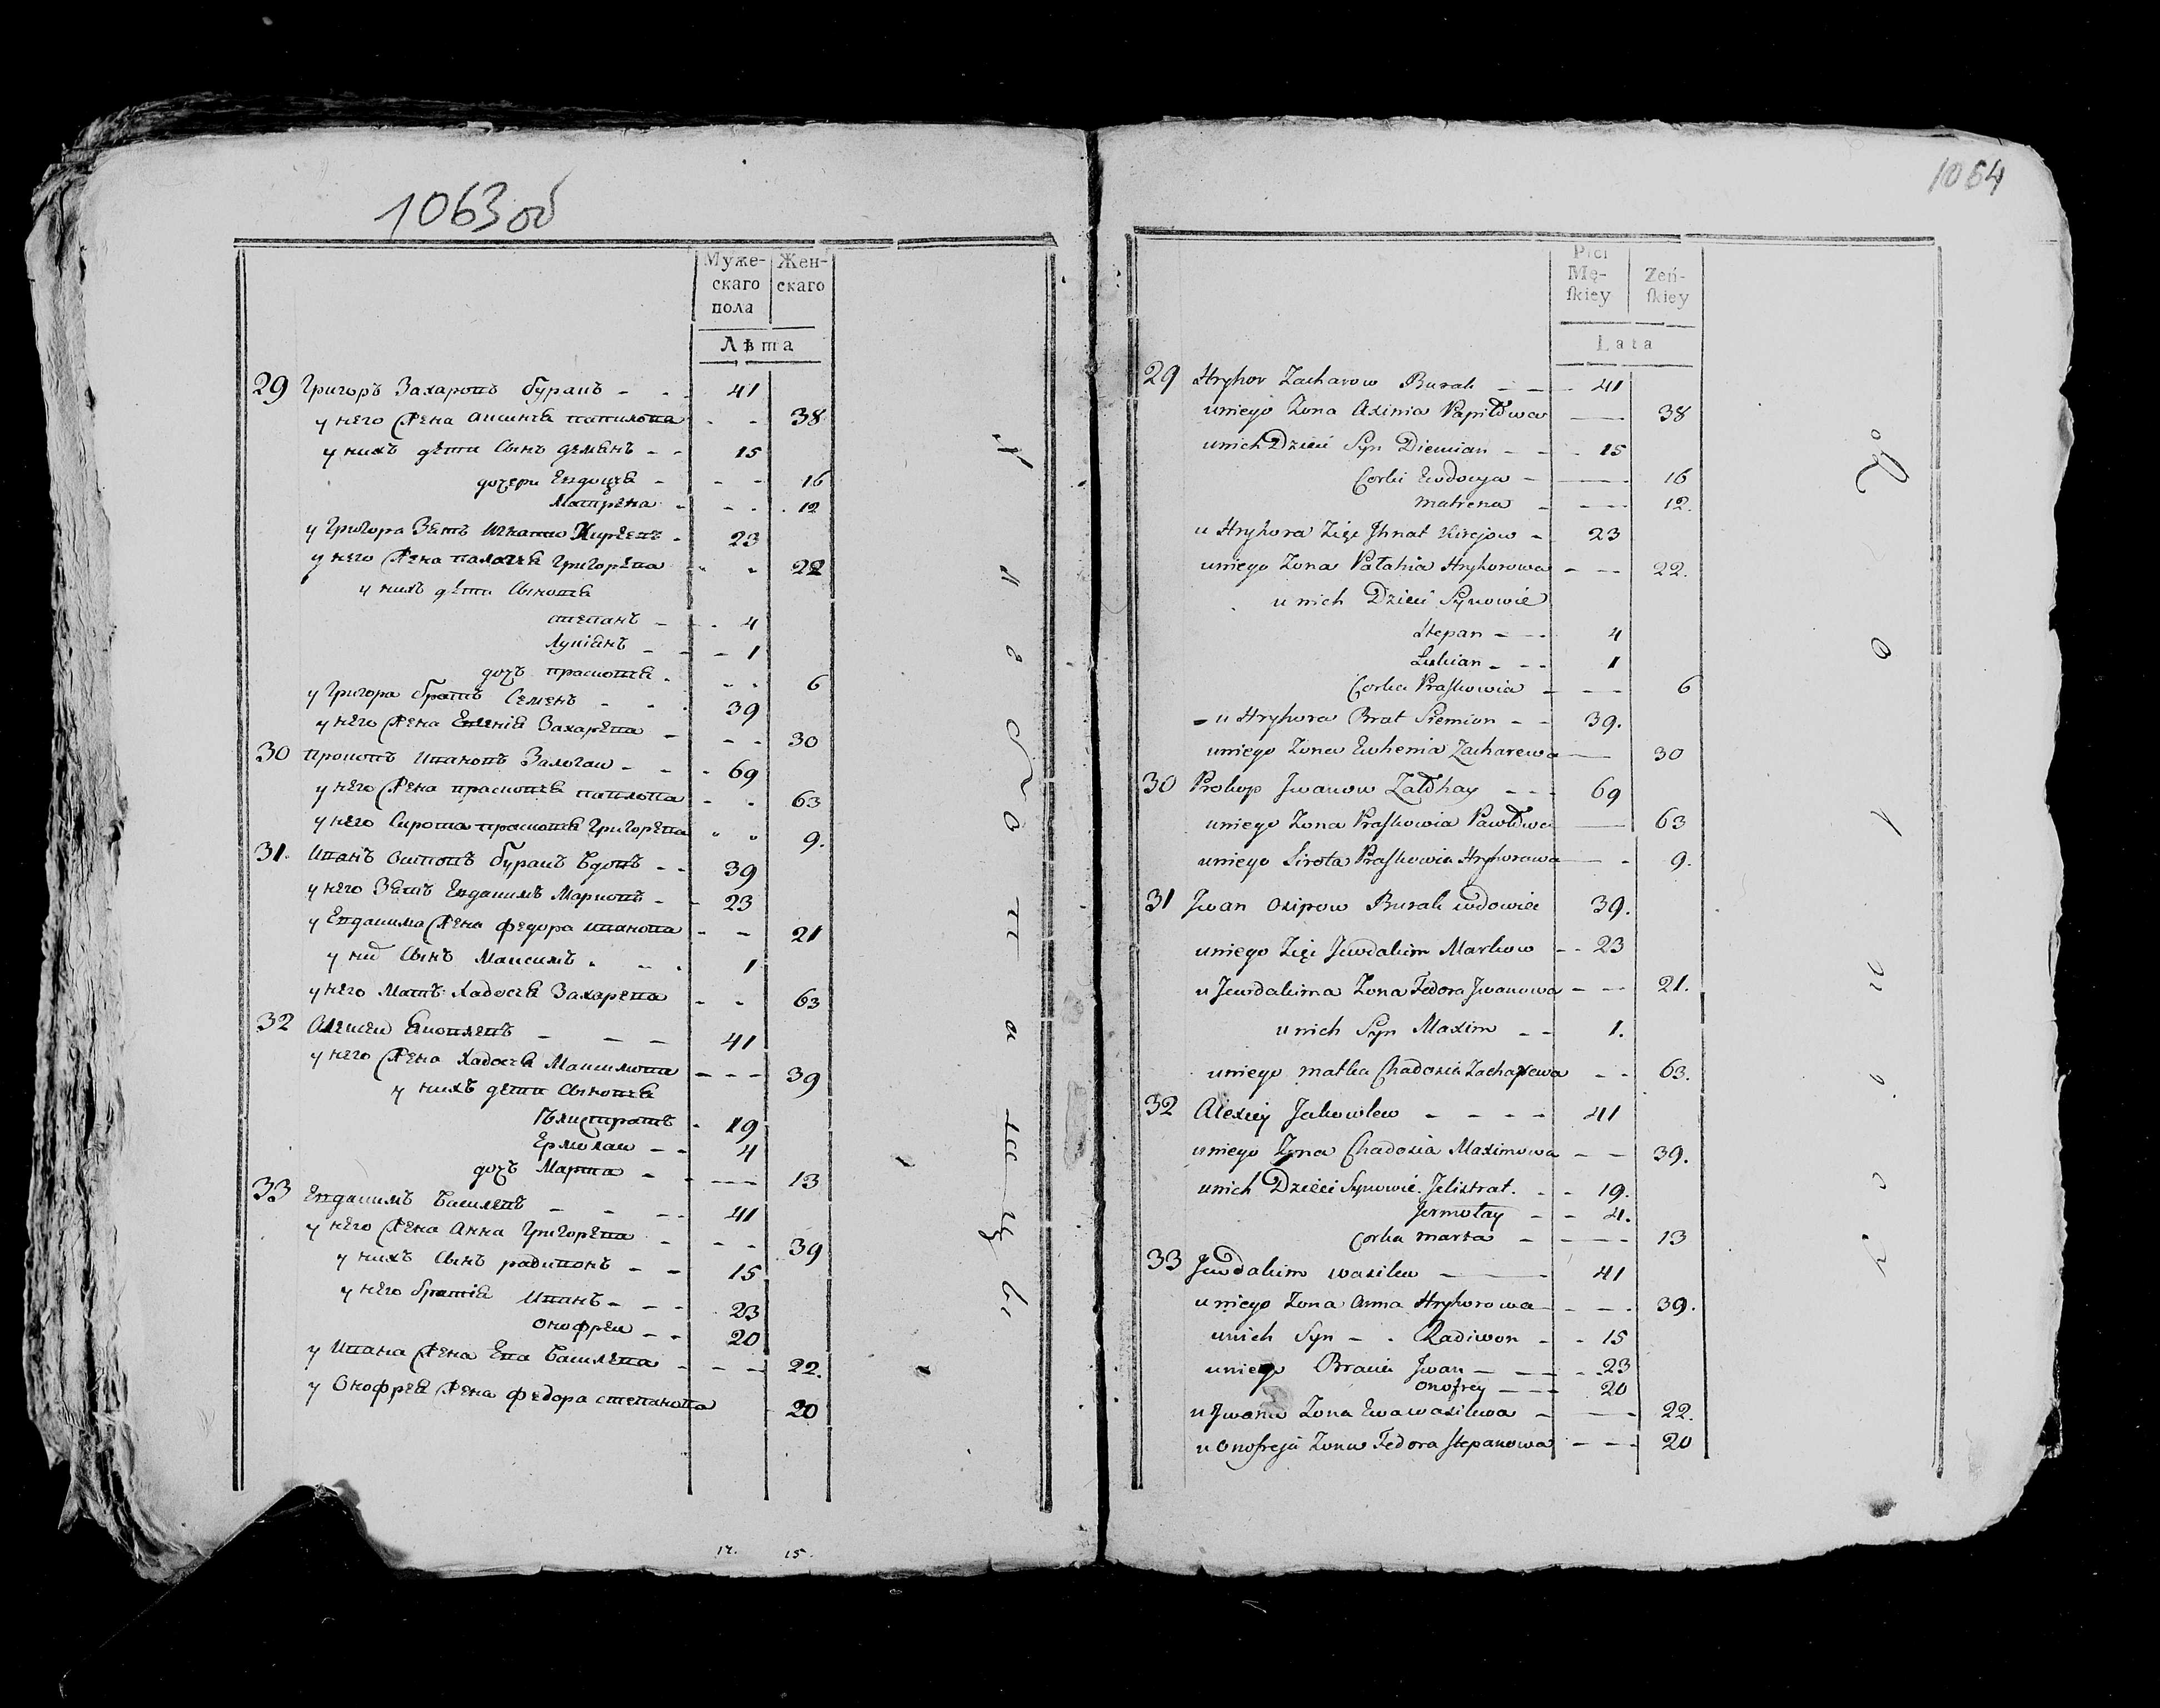 1063об
Муже-
скаго
пола
Жен-
скаго
Лѣта
29 Григоръ Захаровъ буракъ - - 41
у него жена аксинья павилова - - 38
у нихъ дѣти сынъ демьянъ - - 15
дочери Евдоцья - - - 16
Матрена - - - 12
у Григора Зять Игнатъ Кирѣевъ - 23
у него жена палагья Григорева - - 22
у нихъ дѣти сыновья
степанъ - - 4
Лукіянъ - - - 1
дочь прасковья - - - 6
у Григора братъ Семенъ - - 39
у него жена Евгенія Захарева - - - 30
30 Прокопъ Ивановъ Залогаи - - - 69
у него жена прасковья павлова - - 63
у него Сирота прасковья Григорева - - 9.
31. Иванъ Осиповъ буракъ вдовъ - - 39
у него Зять Евдакимъ Марковъ - - 23
у Евдакима жена федора иванова - - 21
у них сынъ Максимъ - - - 1
у него Мать Хадосья Захарева - - 63
32 Алексѣи Яковлевъ - - - 41
у него жена Хадосья Максимова - - - 39
у нихъ дѣти сыновья
Елистратъ - 19
Ермолаи - - 4
дочь Марта - - - 13
33 Евдакимъ Василевъ - - - 41
у него жена Анна Григорева - - - 39
у нихъ сынъ радивонъ - - 15
у него братія Иванъ - - - 23
Онофреи - - 20
у Ивана жена Ева Василева - - - 22.
у Онофрея жена федора степанова 20
17. 15.
1064
Płci
Mę-
ſkiey
Zeń-
ſkiey
Lata
29 Hryhor Zacharow Burak - - - 41
uniego Zona Axinia Papiłowa — 38
unich Dzieci Syn Diemian - - - 15
Corki Ewdocya - — 16
Matrena - - - - 12.
u Hryhora Zięć Jhnat Kirejow - 23
uniego Zona Pałahia Hryhorowa - - - 22.
u nich Dzieci Synowie
Stepan - - - 4
Łukian - - - 1
Corka Praſkowia - - - - 6
u Hryhora Brat Siemion - - 39.
uniego Zona Ewhenia Zacharewa — 30
30 Prokop Jwanow Załohay - - - 69
uniego Zona Praſkowia Pawłowa — 63
uniego Sirota Praſkowia Hryhorowa — - 9.
31 Jwan Oxipow Burak wdowiec 39.
uniego Zięć Jewdakim Markow - - 23
u Jewdakima Zona Fedora Jwanowa - - - 21.
unich Syn Maxim - - 1.
uniego matka Chadosia Zacharewa - - 63.
32 Alexiey Jakowlew - - - - 41
uniego Zona Chadosia Maximowa - - 39.
unich Dzieci Synowie Jelistrat. - - 19.
Jermołay - - 4.
Corka Marta - - - - 13
33 Jewdakim Wasilew — 41
uniego Zona Anna Hryhorowa - - - 39.
unich Syn - - Radiwon - - 15
uniego Bracia Jwan - — - 23
Onofrey - - - 20
u Jwana Zona Ewa Wasilewa - — 22.
u Onofreja Zona Fedora Stepanowa - - - 20